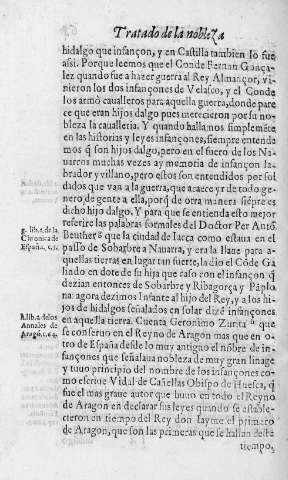 Tratado de la nobleza
hidalgo que infançon, y en Castilla tambien lo fue
assi. Porque leemos que el Conde Fernan Gonça-
lez quando fue a hazer guerra al Rey Almançor, vi-
nieron los dos infançones de Velasco, y el Conde
los armò caualleros para aquella guerra, donde pare
ce que eran hijos dalgo pues merecieron por su no-
bleza la caualleria. Y quando hallamos simplemẽte
en las historias y leyes infançones, siempre entende
mos q̃ son hijos dalgo, pero en el fuero de los Na-
uarros muchas vezes ay memoria de infançon la-
brador y villano, pero estos son entendidos por sol
dados que van a la guerra, que acaece yr de todo ge-
nero de gente a ella, porq̃ de otra manera siẽpre es
dicho hijo dalgo. Y para que se entienda esto mejor
referire las palabras formales del Doctor Per Antõ.
Beuther g que la ciudad de Iacca como estaua en el
passo de Sobarbre a Nauarra, y era la llaue para a-
quellas tierras en lugar tan fuerte, la dio el Cõde Ga
lindo en dote de su hija que caso con el infançon q̃
dezian entonces de Sobarbre y Ribagorça y Pãplo
na: agora dezimos Infante al hijo del Rey, y a los hi-
jos de hidalgos señalados en solar dizẽ infançones
en aquella tierra. Cuenta Geronimo Zurita h que
se conseruo en el Reyno de Aragon mas que en o-
tro de España desde lo muy antigno el nõbre de in-
fançones que señalaua nobleza de muy gran linage
y tuuo principio del nombre de los infançones co-
mo escriue Vidal de Cañellas Obispo de Huesca, q̃
fue el mas graue autor que huuo en todo el Reyno
de Aragon en declarar sus leyes quando se estable-
cieron en tiempo del Rey don Iayme el primero
de Aragon, que son las primeras que se hallan deste
tiempo,
g. lib. 2. de la
Chronica de
España, c.
h. lib. 2. de los
Annales de
Aragõ. c. 64.